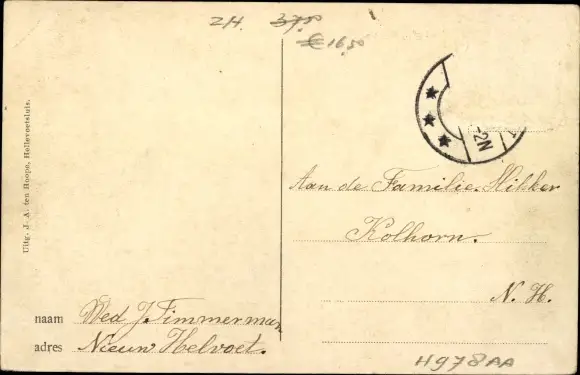 ZH. 37.50
€ 16,50
-2N
Uitg. J. A. ten Hoope, Hellevoetsluis.
Aan de Familie Hikker
Kolhorn.
N. H.
naam Wed J. Timmerman
adres Nieuw Helvoet.
H978AA